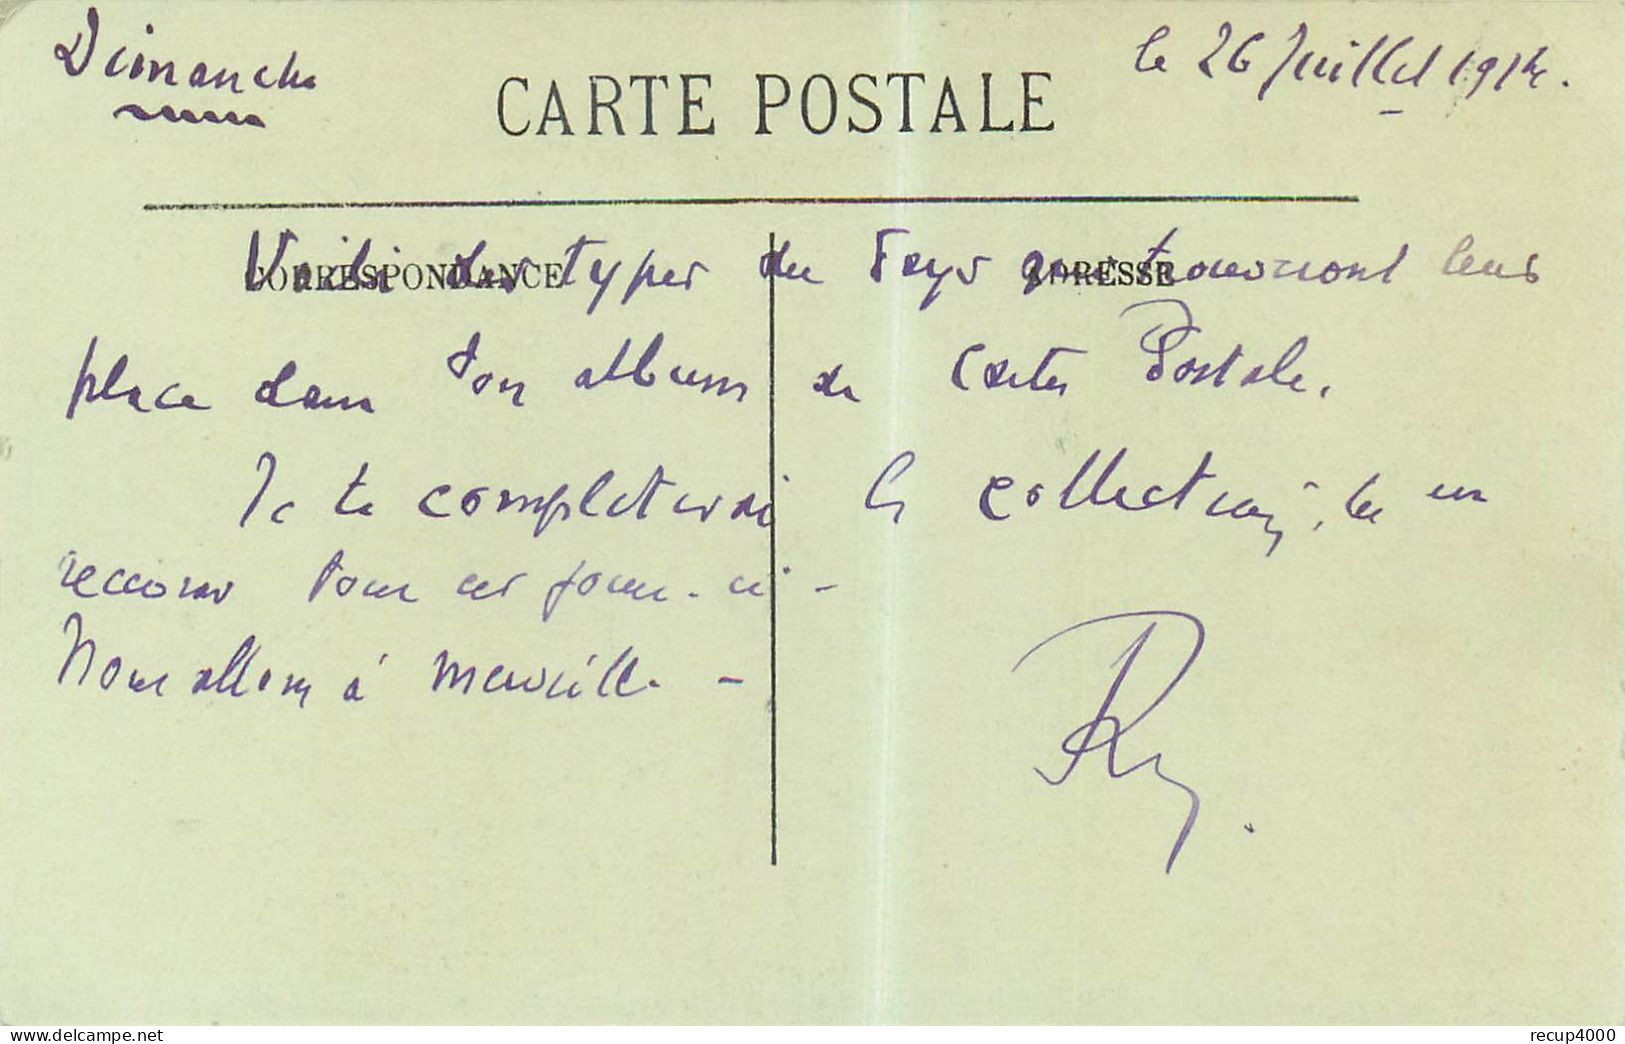 Dimanche
le 26 Juillet 1914.
CARTE POSTALE
CORRESPONDANCE
ADRESSE
Voilà des types du Pays qui trouveront leur
place dans ton album de Cartes Postale.
Je te completerai la collection, tu en
recevras tous ces jours-ci -
Nous allons à merveille -
recup4000